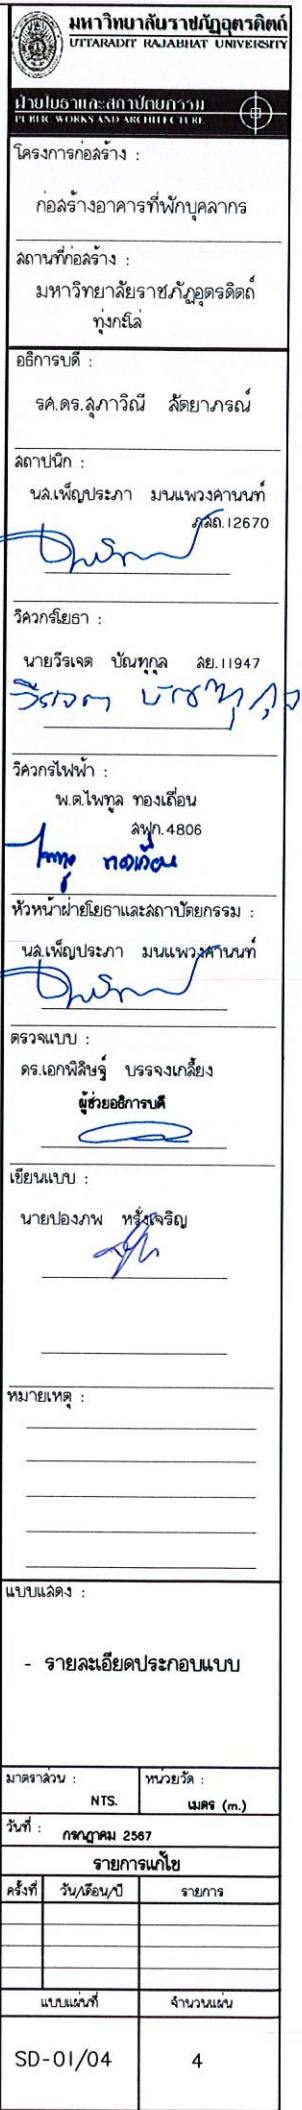 มหาวิทยาลัยราชภัฏอุตรดิตถ์
UTTARADIT RAJABHAT UNIVERSITY
ฝ่ายโยธาและสถาปัตยกรรม
PUBLIC WORKS AND ARCHITECTURE
โครงการก่อสร้าง :
ก่อสร้างอาคารที่พักบุคลากร
สถานที่ก่อสร้าง :
มหาวิทยาลัยราชภัฏอุตรดิตถ์
ทุ่งกะโล่
อธิการบดี :
รศ.ดร.สุภาวิณี สัตยาภรณ์
สถาปนิก :
นส.เพ็ญประภา มนแพวงศานนท์
ภสถ.12670
วิศวกรโยธา :
นายวีรเจต บัณฑุกุล สย.11947
วีรเจต บัณฑุกุล
วิศวกรไฟฟ้า :
พ.ต.ไพฑูล ทองเถื่อน
สฟก.4806
ไพฑูล ทองเถื่อน
หัวหน้าฝ่ายโยธาและสถาปัตยกรรม :
นส.เพ็ญประภา มนแพวงศานนท์
ตรวจแบบ :
ดร.เอกพิสิษฐ์ บรรจงเกลี้ยง
ผู้ช่วยอธิการบดี
เขียนแบบ :
นายปองภพ หรั่งเจริญ
หมายเหตุ :
แบบแสดง :
- รายละเอียดประกอบแบบ
มาตราส่วน : หน่วยวัด :
NTS. เมตร (m.)
วันที่ : กรกฎาคม 2567
รายการแก้ไข
ครั้งที่ วัน/เดือน/ปี รายการ
แบบแผ่นที่ จำนวนแผ่น
SD-01/04 4